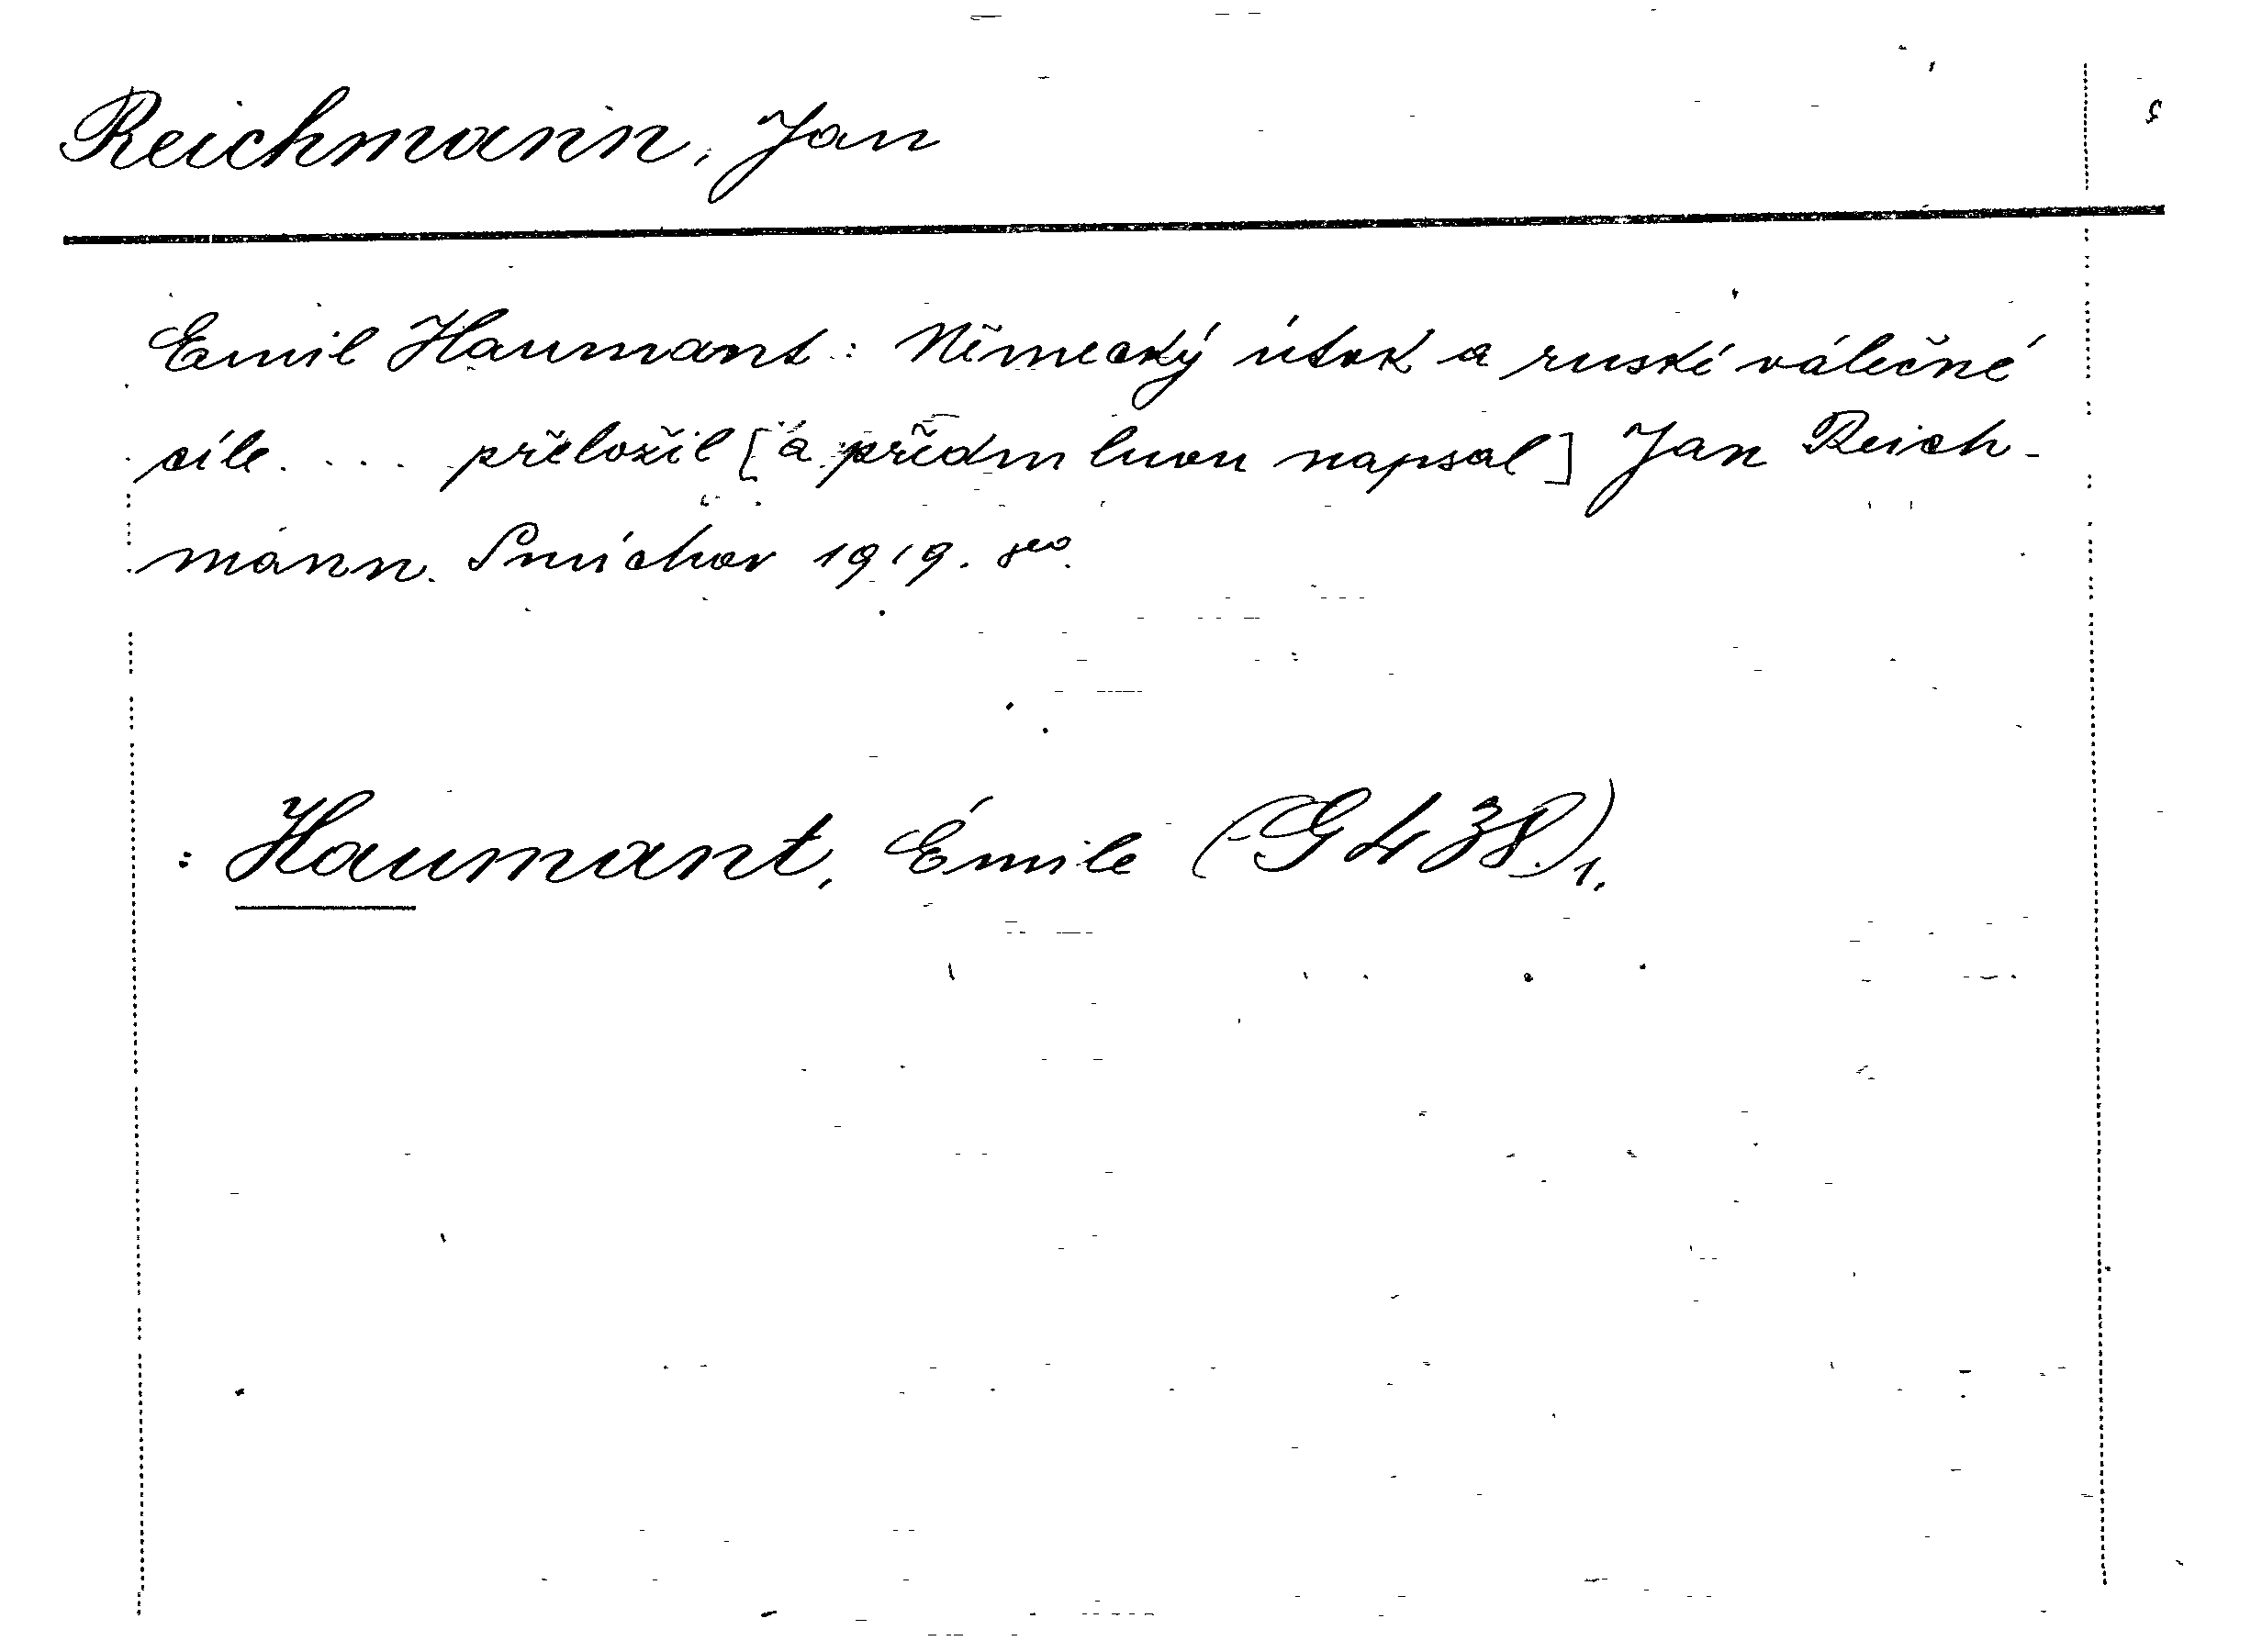 Reichmann, Jan
Emil Haumant: Německý útok a ruské válečné
cíle.... přeložil [a předmluvou napsal] Jan Reich-
mann. Smíchov 1919. 8eo.
: Haumant, Émile (G 438)1.